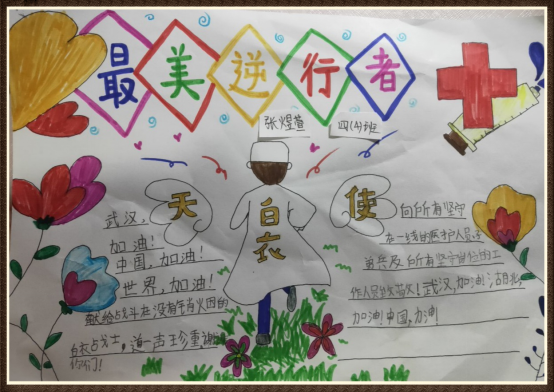 最美逆行者
张煜萱 四(4)班
天白衣使
武汉，
加油！
中国，加油！
世界，加油！
献给战斗在没有硝火团的
白衣占戈士，道一声珍重，谢谢
你们！
向所有坚守
在一线的医护人员
官兵及所有坚守岗位的工
作人员致敬！武汉，加油！湖北，
加油！中国，加油！